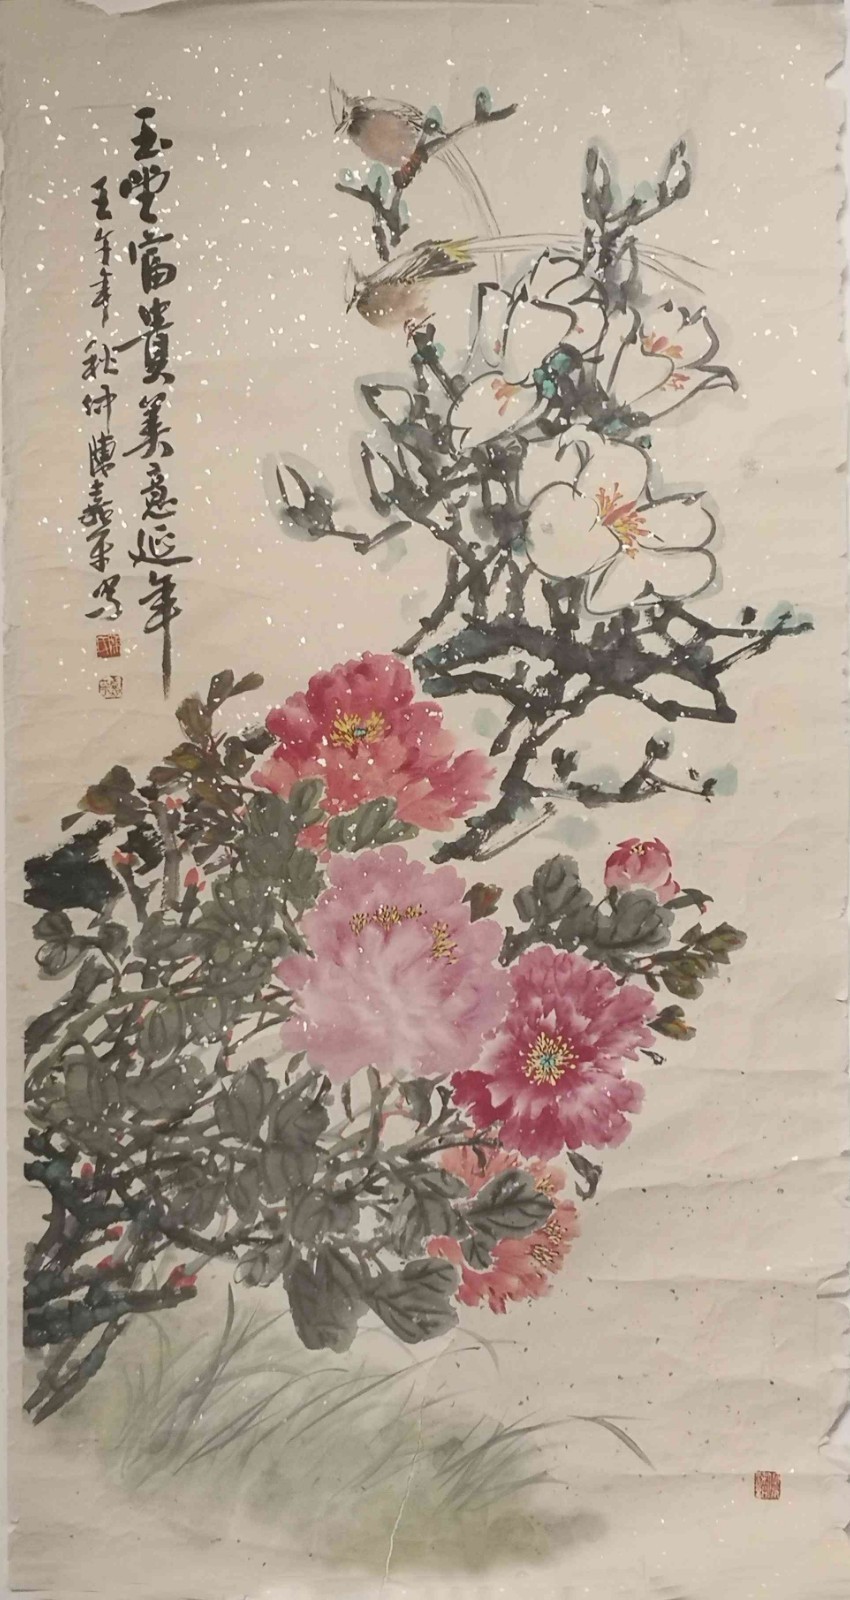 玉堂富貴美意延年
壬午年秋仲陳嘉平寫